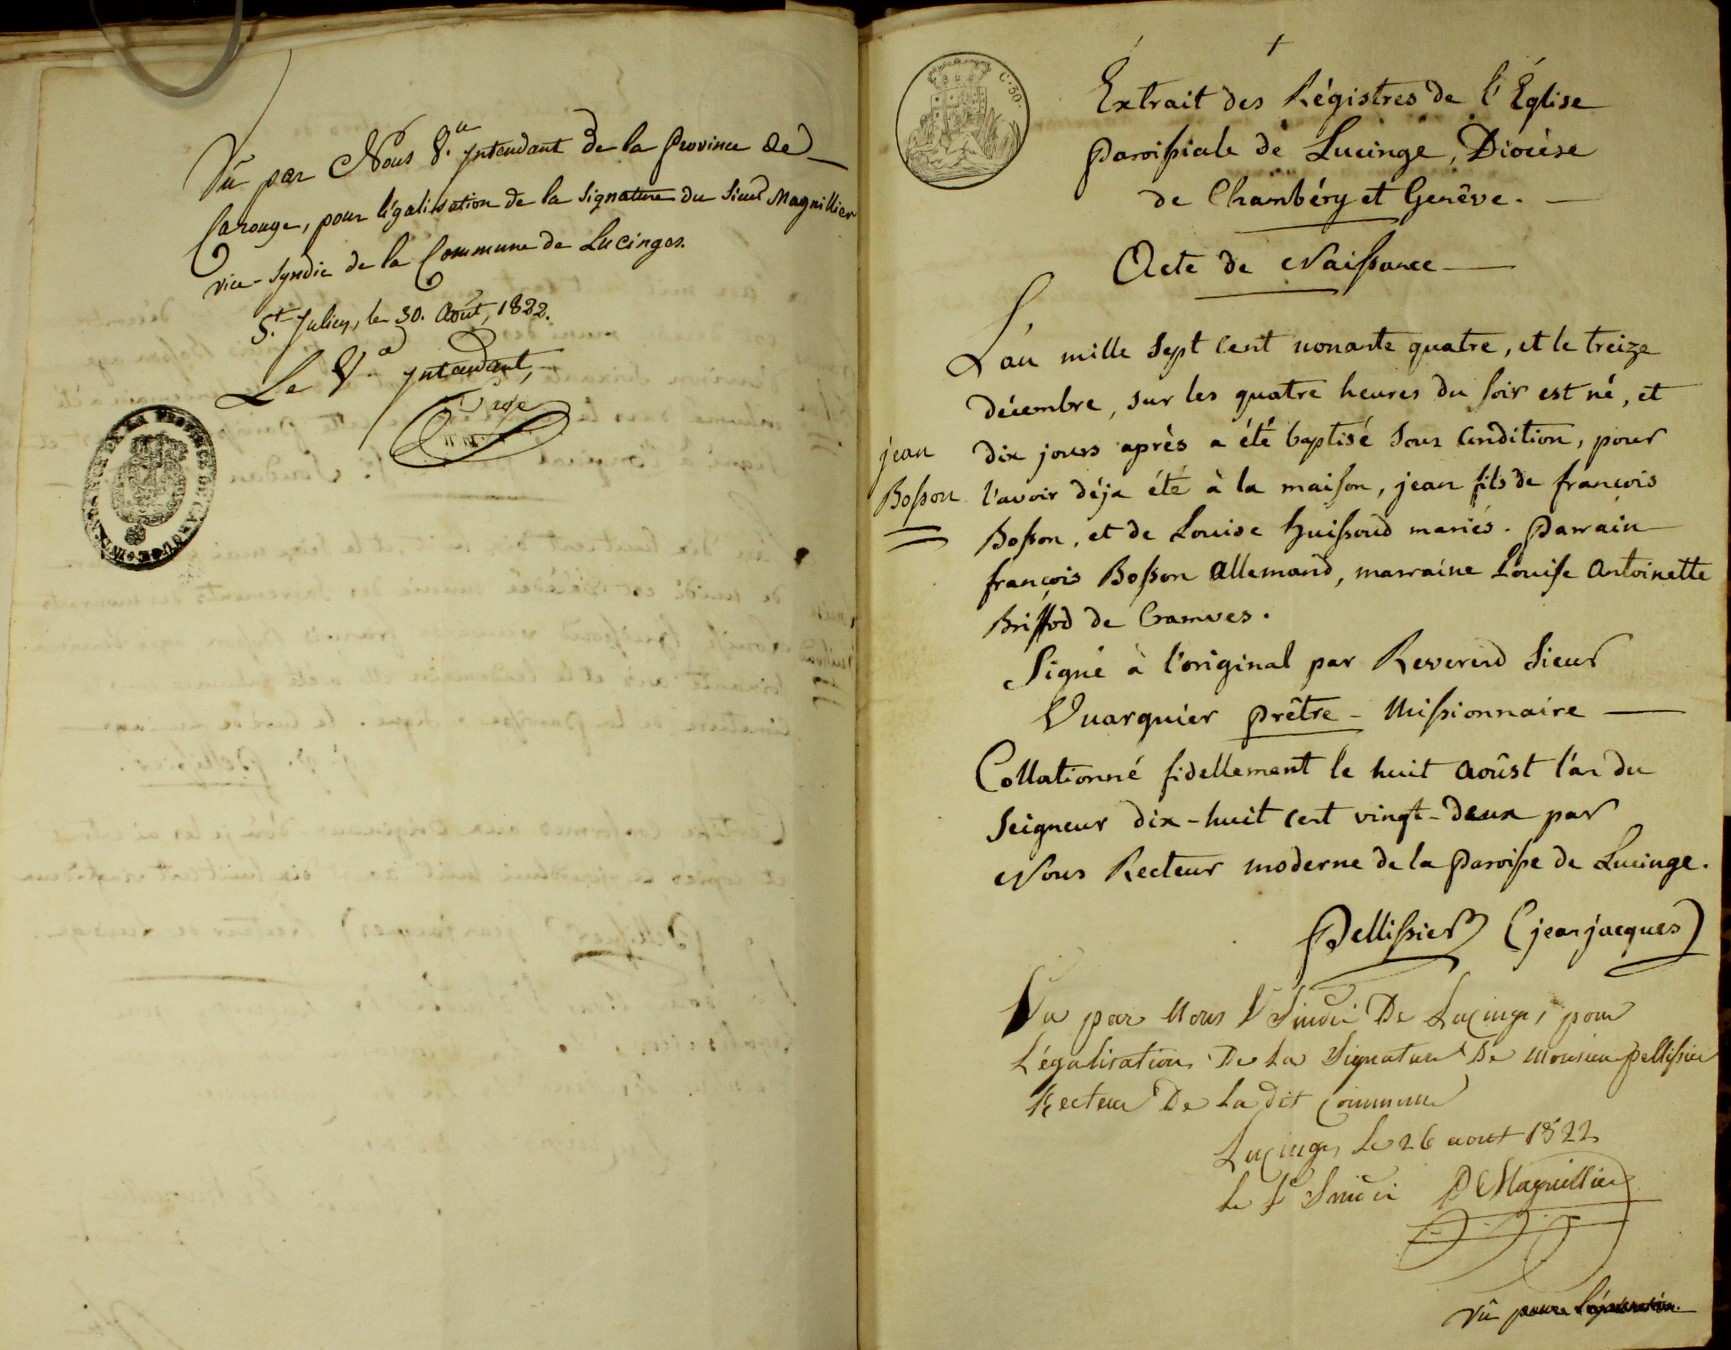 Vû par Nous V.e Intendant de la Province de
Carouge, pour légalisation de la signature du Sieur Magnillier
vice-syndic de la Commune de Lucinges.
St. Julien, le 30. Août, 1822.
Le V.e Intendant,
C. 50.
Extrait des Régistres de l'Église
Paroissiale de Lucinge, Diocèse
de Chambéry et Genêve.
Acte de Naissance
L'an mille sept cent nonante quatre, et le treize
décembre, sur les quatre heures du soir est né, et
dix jours après a été baptisé sous condition, pour
l'avoir déja été à la maison, jean fils de françois
Bosson, et de Louise Guissoud mariés. Parrain
françois Bosson Allemand, marraine Louise Antoinette
Briffod de Cranves.
jean
Bosson
Signé à l'original par Reverend Sieur
Vuarguier Prêtre - Missionnaire
Collationné fidellement le huit Aoûst l'an du
Seigneur dix-huit cent vingt-deux par
Nous Recteur moderne de la Paroisse de Lucinge.
Pellissier (jean jacques)
Vu par Nous V Sindic De Lucinge, pour
Légalisation De La Signature De Monsieur pellissier
Recteur De La dit Commune
Lucinges Le 26 aout 1822
Le V Sindic P Magnillier
Vû pour